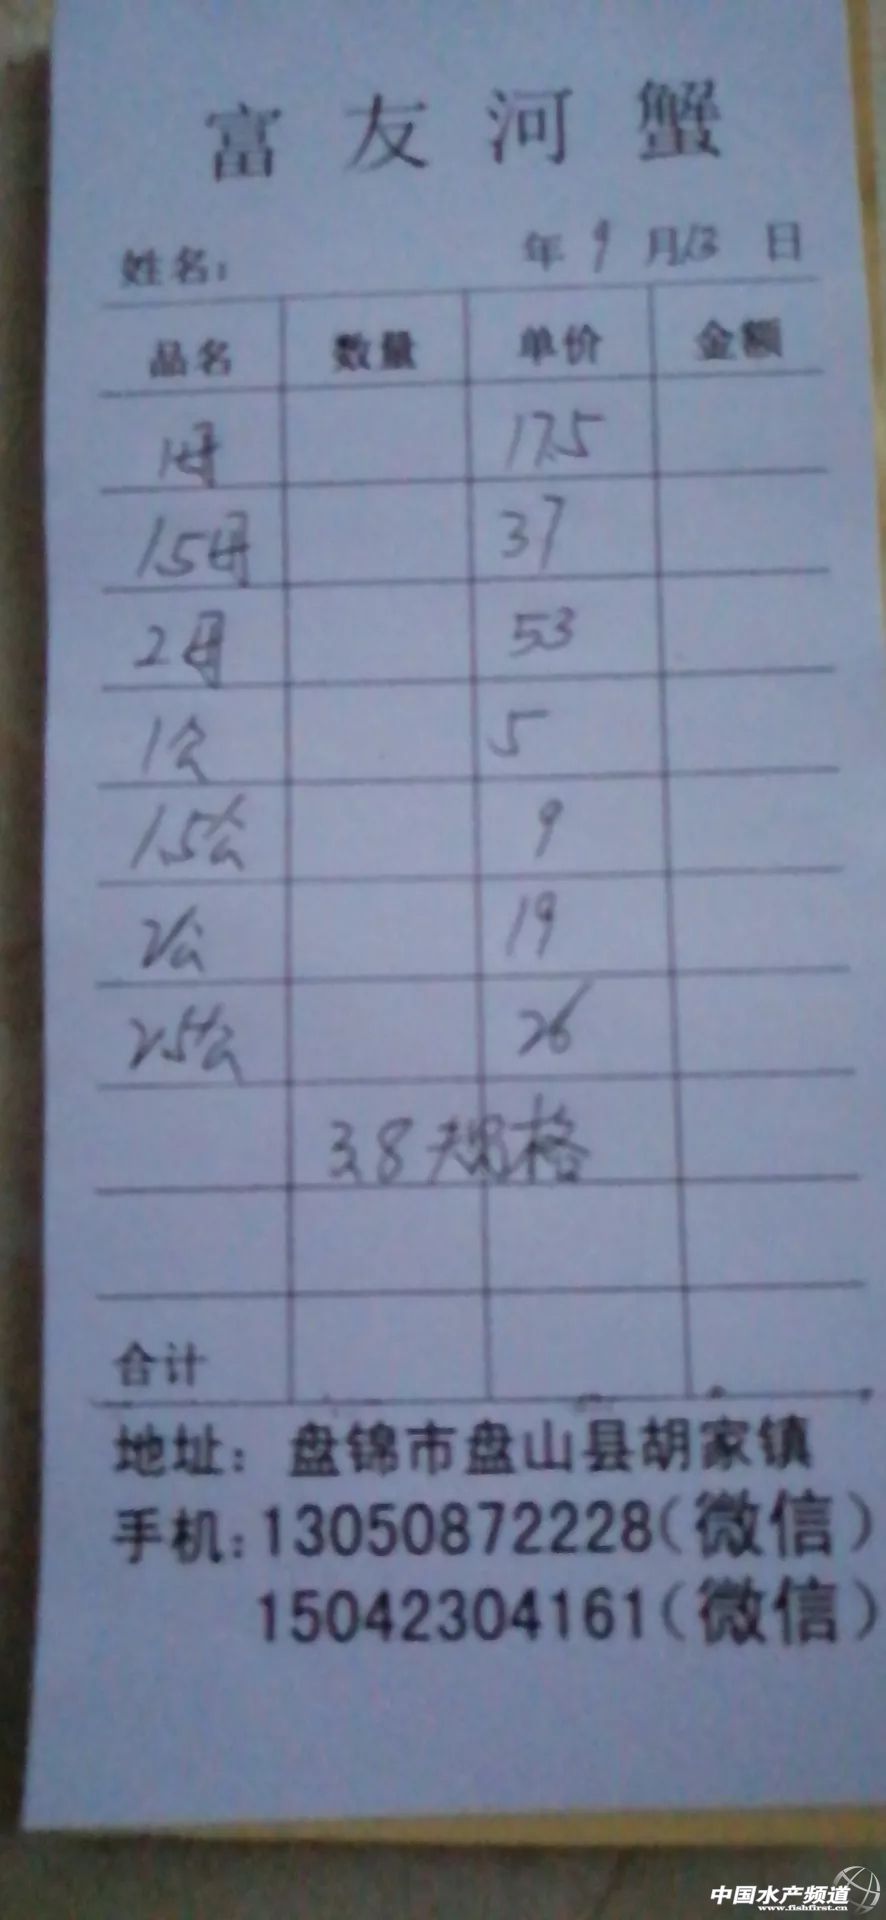 富友河蟹
姓名： 年 9 月 13 日
品名 数量 单价 金额
1母 17.5
1.5母 37
2母 53
1公 5
1.5公 9
2公 19
2.5公 26
3.8规格
合计
地址：盘锦市盘山县胡家镇
手机：13050872228（微信）
15042304161（微信）
中国水产频道
www.fishfirst.cn